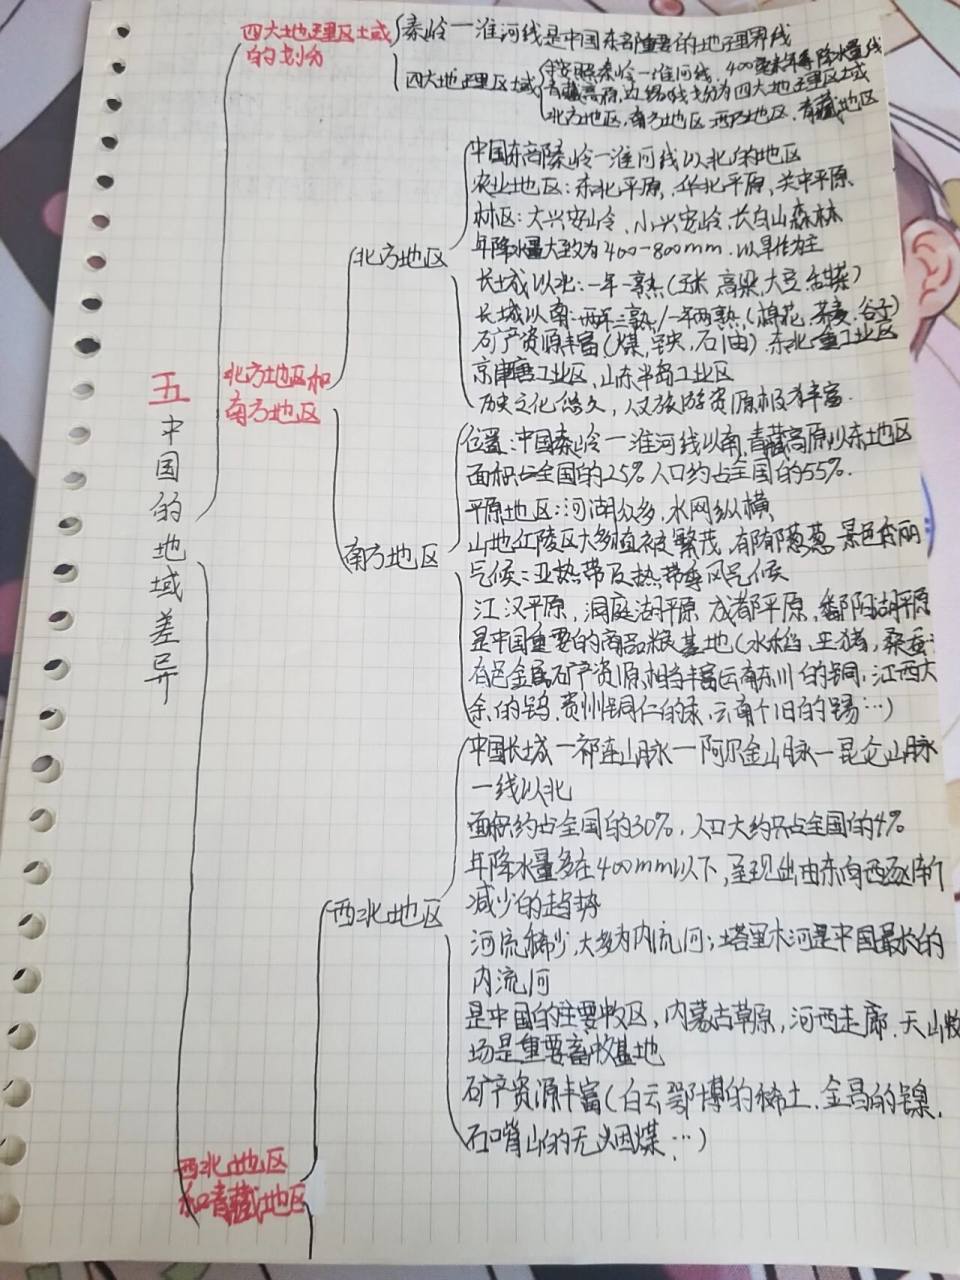 四大地理区域
的划分
秦岭一淮河线是中国东部重要的地理界线
四大地理区域
按照秦岭一淮河线、400毫米年等降水量线
青藏高原边缘线划分为四大地理区域
北方地区、南方地区、西北地区、青藏地区
五
中国的地域差异
北方地区和
南方地区
北方地区
中国东部秦岭一淮河线以北的地区
农业地区：东北平原、华北平原、关中平原
林区：大兴安岭、小兴安岭、长白山森林
年降水量大致为400-800mm，以旱作为主
长城以北：一年一熟（玉米 高粱、大豆、甜菜）
长城以南：两年三熟/一年两熟（棉花、荞麦、谷子）
矿产资源丰富（煤、铁、石油）东北重工业区
京津唐工业区、山东半岛工业区
历史文化悠久，人文旅游资源极为丰富.
南方地区
位置：中国秦岭一淮河线以南，青藏高原以东地区
面积占全国的25% 人口约占全国的55%.
平原地区：河湖众多，水网纵横
山地红陵区大多植被繁茂，郁郁葱葱 景色秀丽
气候：亚热带及热带季风气候
江汉平原，洞庭湖平原 成都平原，鄱阳湖平原
是中国重要的商品粮基地（水稻，生猪，桑蚕
有色金属矿产资源相当丰富云南东川的铜，江西大
余的钨，贵州铜仁的汞，云南个旧的锡…）
西北地区
和青藏地区
西北地区
中国长城一祁连山脉一阿尔金山脉一昆仑山脉
一线以北
面积约占全国的30%，人口大约只占全国的4%
年降水量多在400mm以下，呈现出由东向西逐渐
减少的趋势
河流稀少，大多为内流河；塔里木河是中国最长的
内流河
是中国的主要牧区，内蒙古草原，河西走廊，天山牧
场是重要畜牧基地
矿产资源丰富（白云鄂博的稀土，金昌的镍，
石嘴山的无烟煤…）